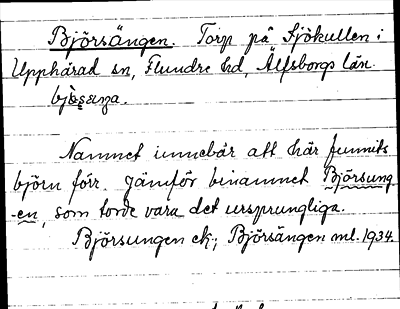 Björsängen. Torp på Sjökullen i
Upphärad sn, Flundre hd, Älfsborgs län.
Namnet innebär att här funnits
björn förr. Jämför binamnet Björsung-
-en, som torde vara det ursprungliga.
Björsungen ek.; Björsängen ml. 1934.